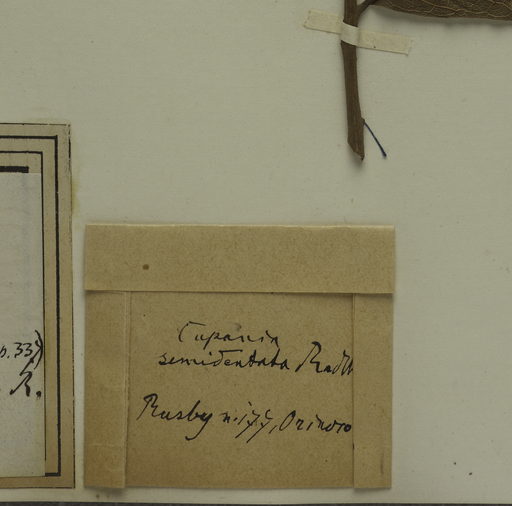 p. 33)
R.
Cupania
semidentata Radlk
Rusby n. 177, Orinoco